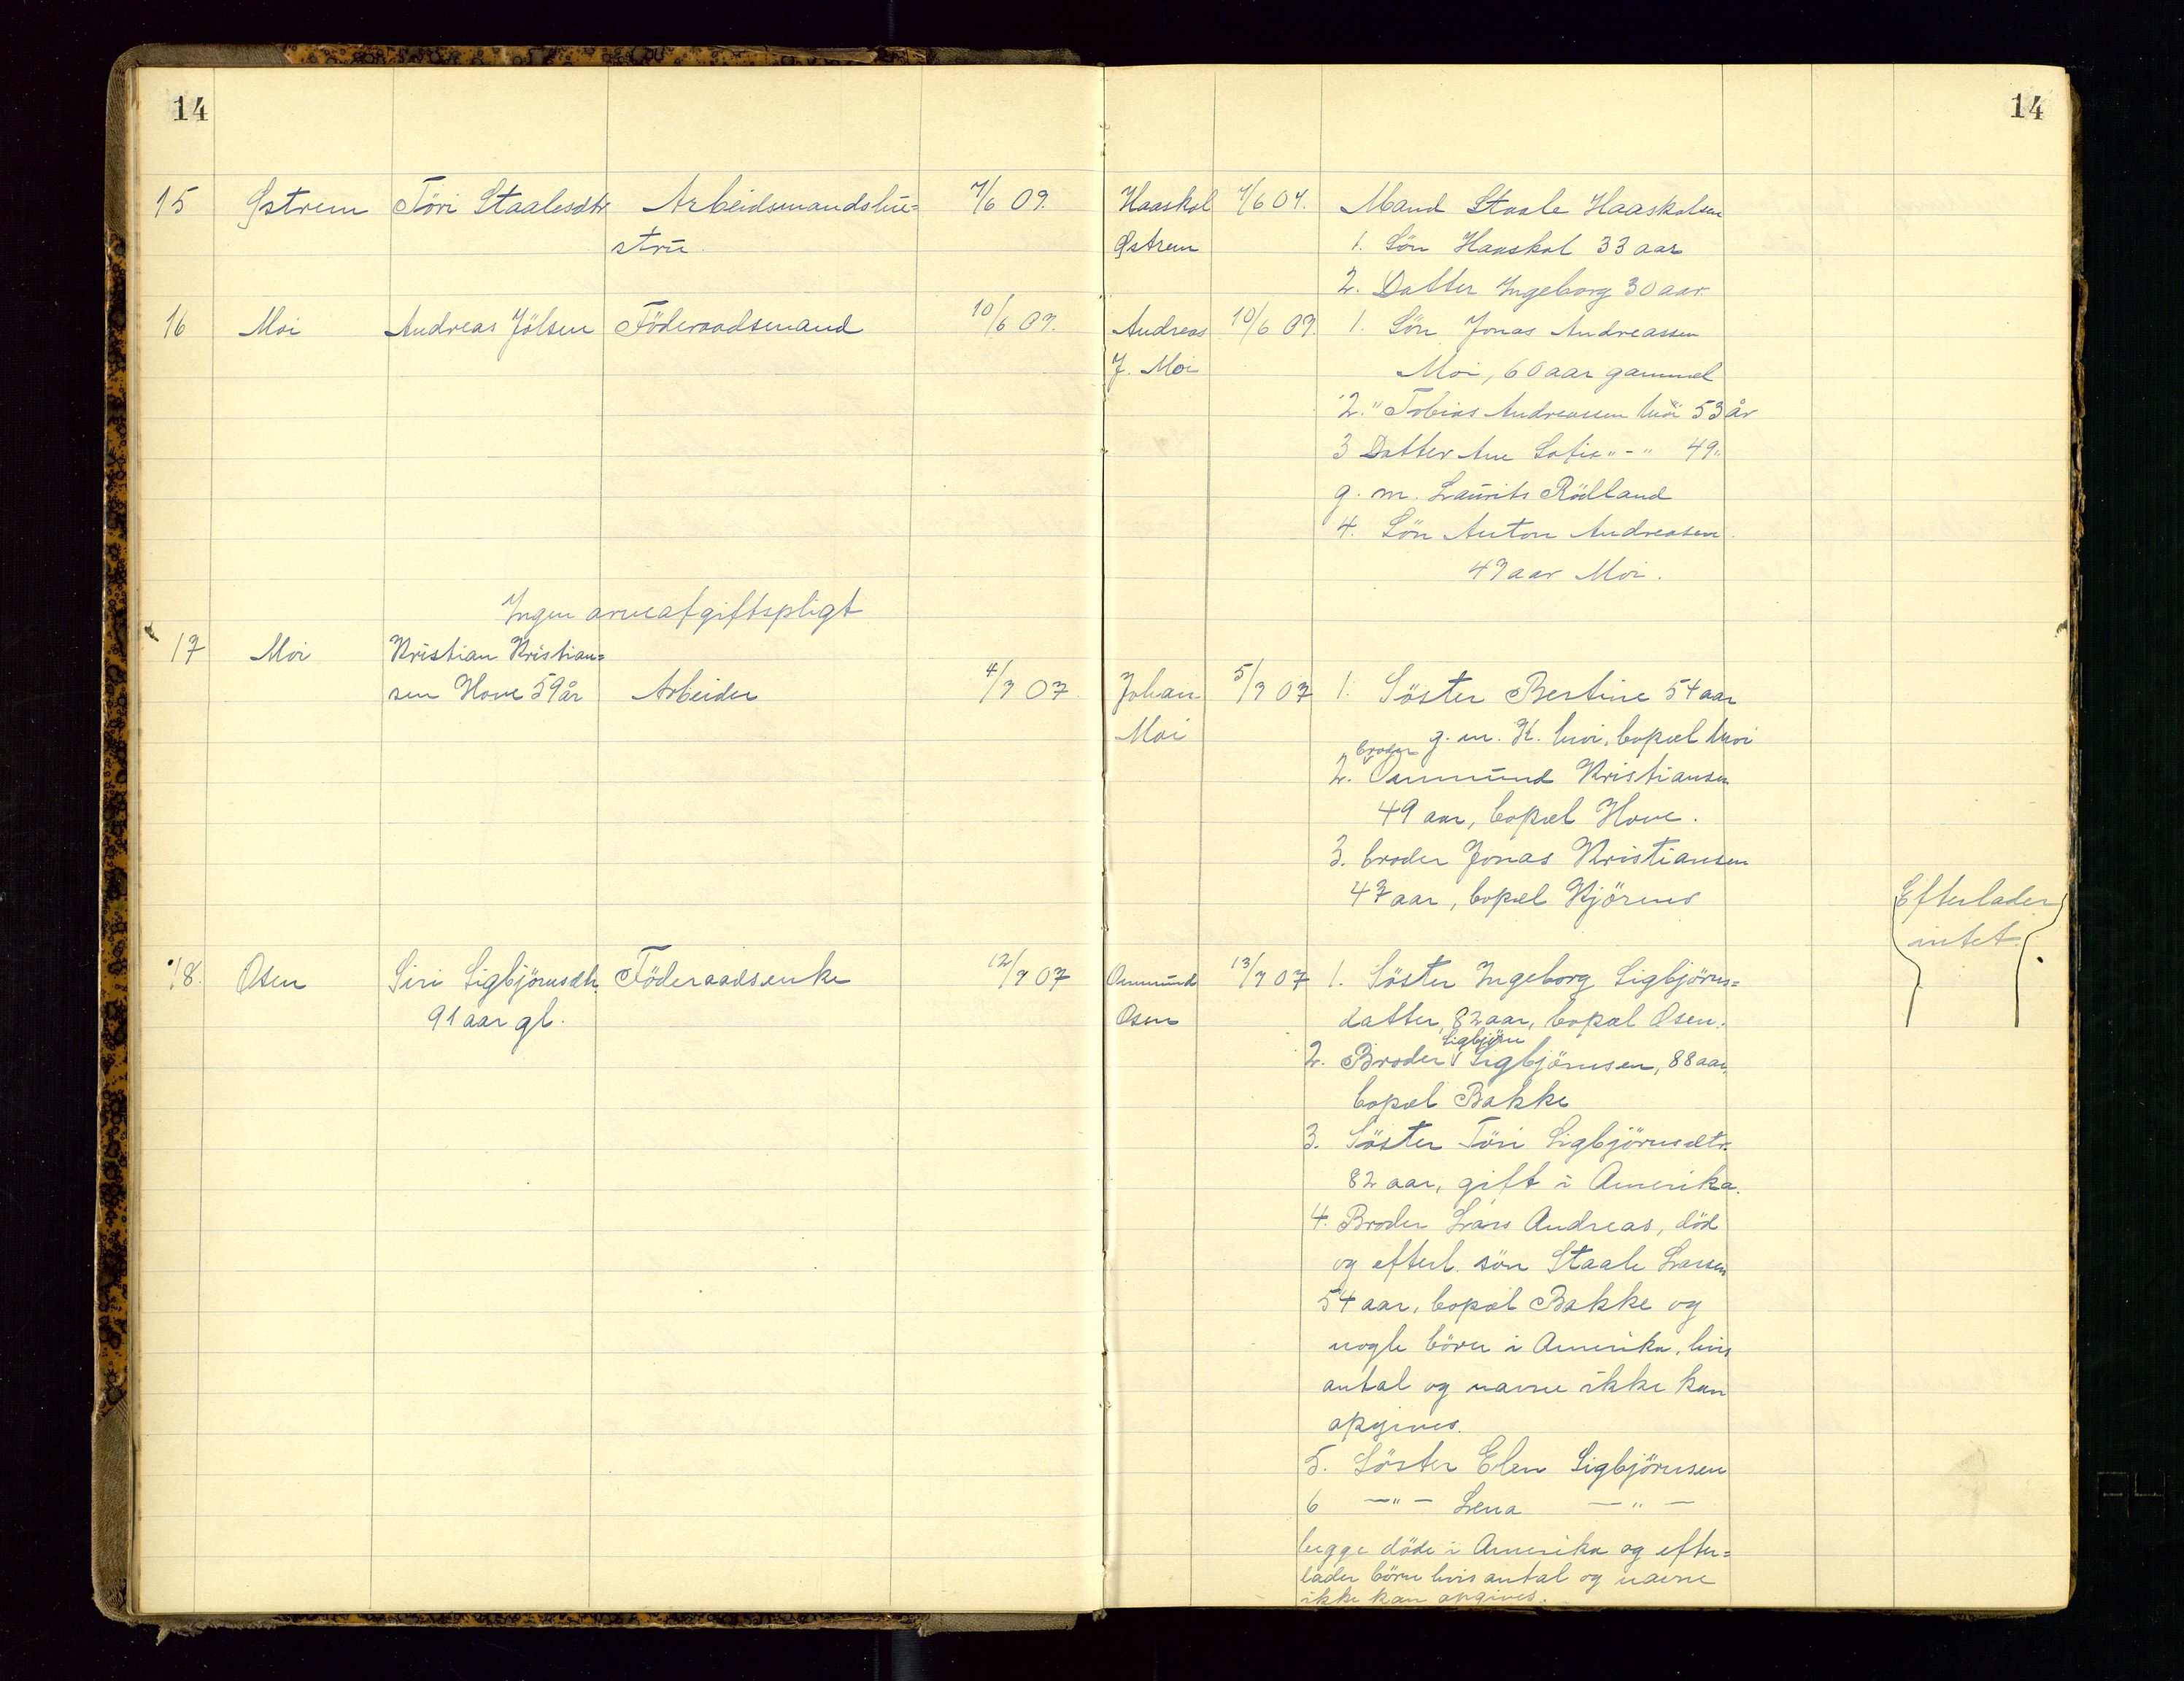 14
14
15 Østrem Töri Staalesdtr Arbeidsmandshu=
stru.
7/6 07.
Haaskol
Østrem
7/6 07.
Mand Staale Haaskolsen
1. Sön Haaskol 33 aar
2. Datter Ingeborg 30 aar
16 Moi Andreas Jölsen Föderaadsmand 10/6 07.
Andreas
J. Moi
10/6 07
1. Sön Jonas Andreassen
Moi, 60 aar gammel
2. " Tobias Andreassen Moi 53 år
3 Datter Ane Sofie " - " 49 "
g. m. Laurits Rödland
4. Sön Anton Andreasen
47 aar Moi.
Ingen arveafgiftspligt
17 Moi Kristian Kristian=
sen Hove 59 år Arbeider 4/7 07
Johan
Moi
5/7 07
1. Söster Bertine 54 aar
g. m. K. Moi, bopæl Moi
broder
2. Ommund Kristiansen
49 aar, bopæl Hove.
3. broder Jonas Kristiansen
47 aar, bopæl
Efterlader
intet.
18. Osen Siri Sigbjörnsdtr. Föderaadsenke 12/7 07
91 aar gl.
Ommund
Osen
13/7 07
1. Söster Ingeborg Sigbjörns=
datter, 82 aar, bopæl Osen.
Sigbjörn
2. Broder Sigbjörnsen, 88 aar,
bopæl Bakke
3. Söster Töri Sigbjörnsdtr.
82 aar, gift i Amerika.
4. Broder Lars Andreas, död
og efterl. sön Staale Larsen
54 aar, bopæl Bakke og
nogle börn i Amerika, hvis
antal og navne ikke kan
opgives.
5. Söster Elen Sigbjörnsen
6 — " — Lena — " —
begge döde i Amerika og efter=
lader börn hvis antal og navne
ikke kan opgives.